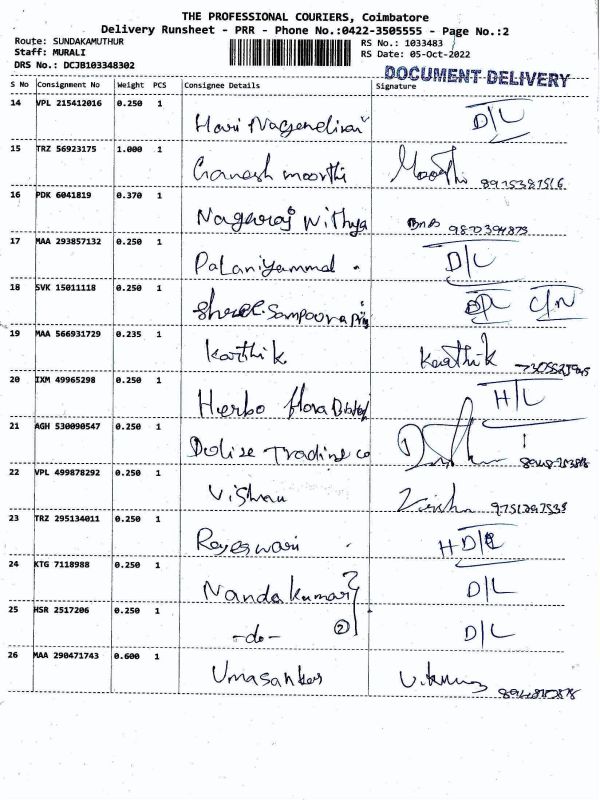 THE PROFESSIONAL COURIERS, Coimbatore
Delivery Runsheet - PRR - Phone No.:0422-3505555 - Page No.:2
Route: SUNDAKAMUTHUR RS No.: 1033483
Staff: MURALI RS Date: 05-Oct-2022
DRS No.: DCJB103348302
DOCUMENT DELIVERY
S No Consignment No Weight PCS Consignee Details Signature
14 VPL 215412016 0.250 1
Hari Nagendiran D/L
15 TRZ 56923175 1.000 1
Ganesh moorthi
16 PDK 6041819 0.370 1
Nagaraj Withya
17 MAA 293857132 0.250 1
Palaniyammal D/L
18 SVK 15011118 0.250 1
Shree. Sampoorna
19 MAA 566931729 0.235 1
Karthik Karthik
20 IXM 49965298 0.250 1
Herbo flora H/L
21 AGH 530090547 0.250 1
Dolise Trading co
22 VPL 499878292 0.250 1
Vishnu
23 TRZ 295134011 0.250 1
Rajeswari
24 KTG 7118988 0.250 1
Nanda kumar D/L
25 HSR 2517206 0.250 1
-do- 2 D/L
26 MAA 290471743 0.600 1
Umasankar